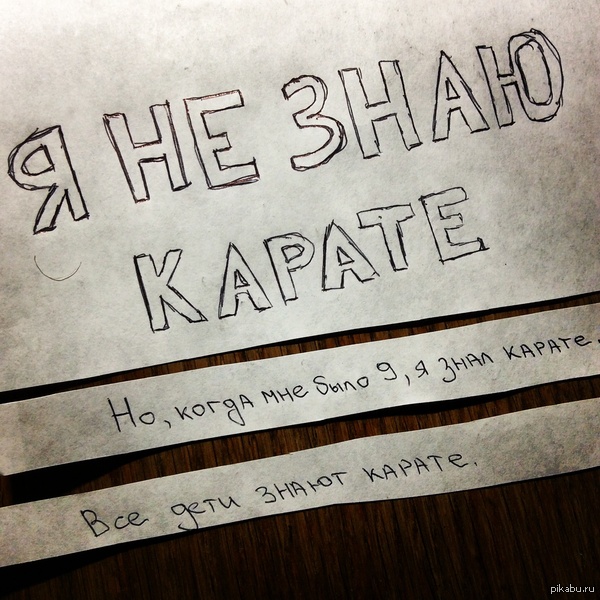 Я НЕ ЗНАЮ
КАРАТЕ
Но, когда мне было 9, я знал карате.
Все дети знают карате.
pikabu.ru